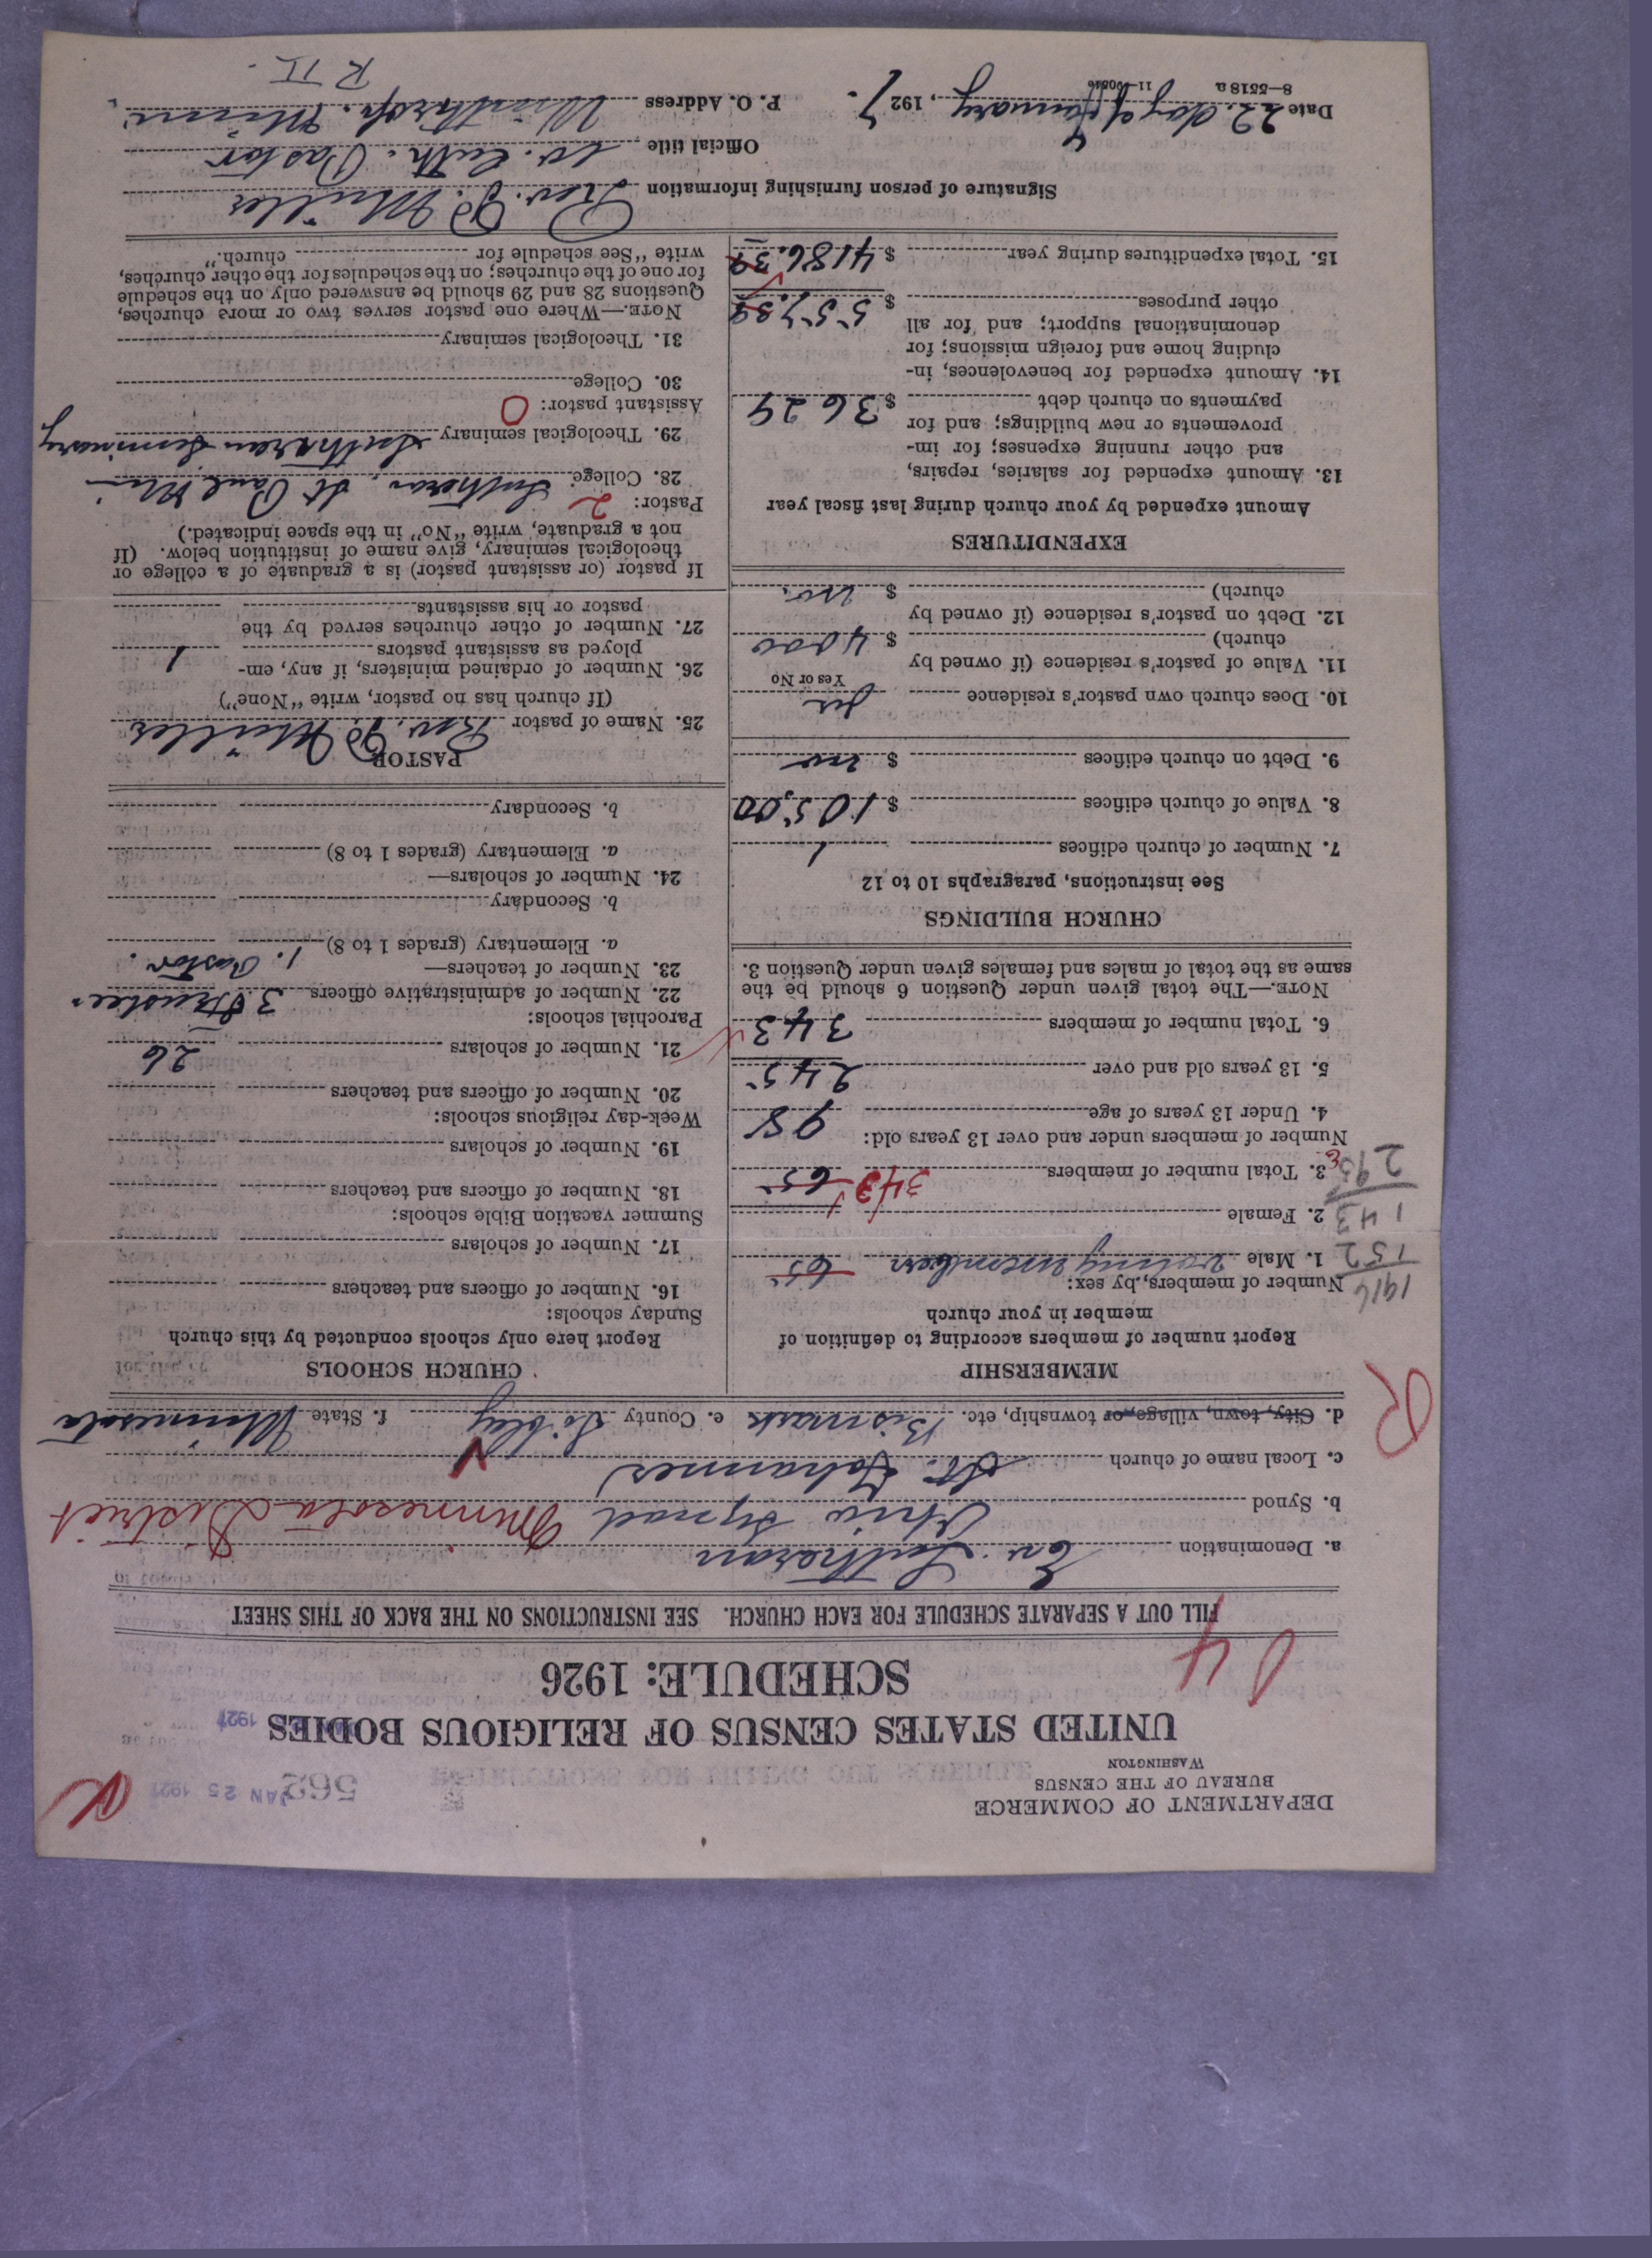 DEPARTMENT OF COMMERCE
BUREAU OF THE CENSUS
WASHINGTON
562
JAN 25 1927
UNITED STATES CENSUS OF RELIGIOUS BODIES
SCHEDULE: 1926
FILL OUT A SEPARATE SCHEDULE FOR EACH CHURCH. SEE INSTRUCTIONS ON THE BACK OF THIS SHEET
a. Denomination Ev. Lutheran
b. Synod Ohio Synod Minnesota District
c. Local name of church St. Johannes
d. City, town, village, or township, etc. Bismark e. County Sibley f. State Minnesota
MEMBERSHIP
Report number of members according to definition of
member in your church
Number of members, by sex:
1916
1. Male voting members 65
152
2. Female
143
3. Total number of members 343 65
295
Number of members under and over 13 years old:
4. Under 13 years of age 98
5. 13 years old and over 245
6. Total number of members 343
NOTE.—The total given under Question 6 should be the
same as the total of males and females given under Question 3.
CHURCH BUILDINGS
See instructions, paragraphs 10 to 12
7. Number of church edifices 1
8. Value of church edifices $ 105,00
9. Debt on church edifices $ no
10. Does church own pastor's residence yes
Yes or No
11. Value of pastor's residence (if owned by
church) $ 4000
12. Debt on pastor's residence (if owned by
church) $ no.
EXPENDITURES
Amount expended by your church during last fiscal year
13. Amount expended for salaries, repairs,
and other running expenses; for im-
provements or new buildings; and for
payments on church debt $ 3629
14. Amount expended for benevolences, in-
cluding home and foreign missions; for
denominational support; and for all
other purposes $ 557.39
15. Total expenditures during year $ 4186.39
CHURCH SCHOOLS
Report here only schools conducted by this church
Sunday schools:
16. Number of officers and teachers
17. Number of scholars
Summer vacation Bible schools:
18. Number of officers and teachers
19. Number of scholars
Week-day religious schools:
20. Number of officers and teachers
21. Number of scholars 26
Parochial schools:
22. Number of administrative officers 3 Trustees
23. Number of teachers—
1. Pastor.
a. Elementary (grades 1 to 8)
b. Secondary
24. Number of scholars—
a. Elementary (grades 1 to 8)
b. Secondary
PASTOR
25. Name of pastor Rev. Müller
(If church has no pastor, write "None")
26. Number of ordained ministers, if any, em-
ployed as assistant pastors 1
27. Number of other churches served by the
pastor or his assistants
If pastor (or assistant pastor) is a graduate of a college or
theological seminary, give name of institution below. (If
not a graduate, write "No" in the space indicated.)
Pastor: 2
28. College Lutheran, St Paul Min
29. Theological seminary Lutheran Seminary
Assistant pastor: 0
30. College
31. Theological seminary
NOTE.—Where one pastor serves two or more churches,
Questions 28 and 29 should be answered only on the schedule
for one of the churches; on the schedules for the other churches,
write "See schedule for church."
Signature of person furnishing information Rev. Müller
Official title Ev. Luth. Pastor
Date 22. day of January, 1927. P. O. Address Winthrop. Minn.
8—5518 a
R II.